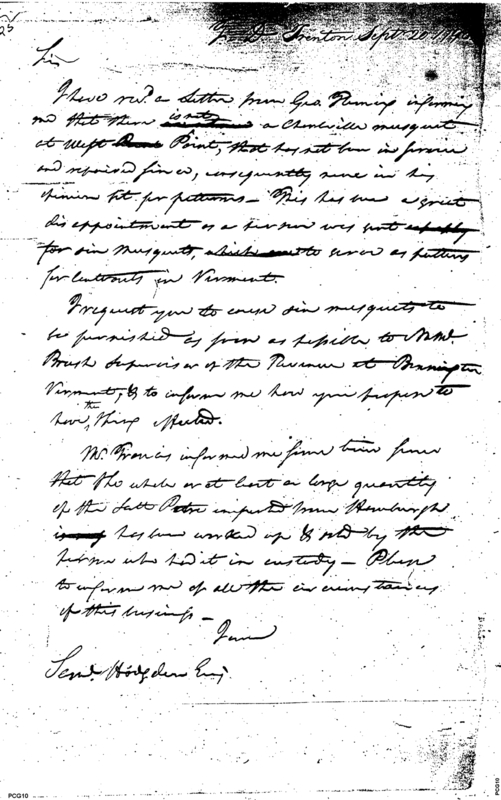 25
T. D. Trenton Sept. 20 179
Sir
I have recd. a Letter from Geo. Fleming informing
me that there is not a Charlville musquet
at West Point, that has not been in service
and repaired since, consequently none in his
opinion fit for patterns — This has been a great
disappointment as a person was sent
for six musquets, to serve as patterns
for contracts in Vermont.
I request you to cause six musquets to
be furnished as soon as possible to Nathl.
Brush Supervisor of the Revenue at Bennington
Vermont, & to inform me how you propose to
have the thing effected.
Mr. Francis informed me some time since
that the whole or at least a large quantity
of the Salt Petre imported from Hamburgh
has been worked up & sold by the
person who had it in custody — Please
to inform me of all the circumstances
of this business —
I am
Saml. Hodgdon Esq.
PCG10
PCG10